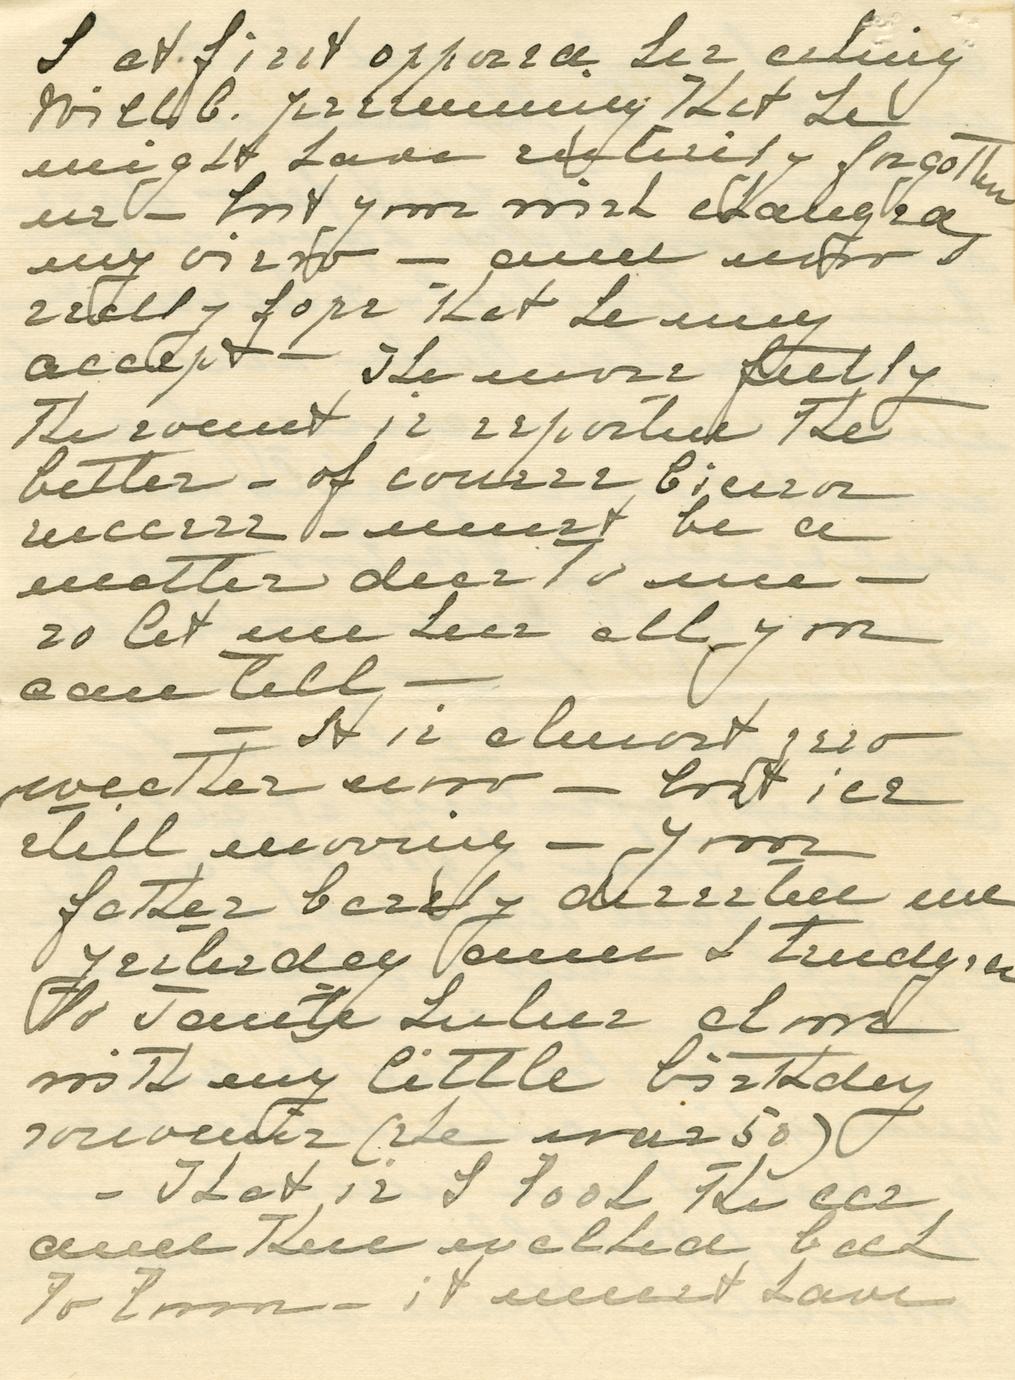 I at first opposed her asking
Will B. presuming that he
might have entirely forgotten
me – but your wish changed
my views – and now I
really hope that he may
accept – The more fully
the event is reported the
better – of course
success – must be a
matter dear to me –
so let me hear all you
can tell –
– It is almost zero
weather now – but ice
still moving – Your
father basely deserted me
yesterday and I trudged
to Tante alone
with my little birthday
souvenir (she was 50)
– That is I took the car
and then walked back
to town – it must have